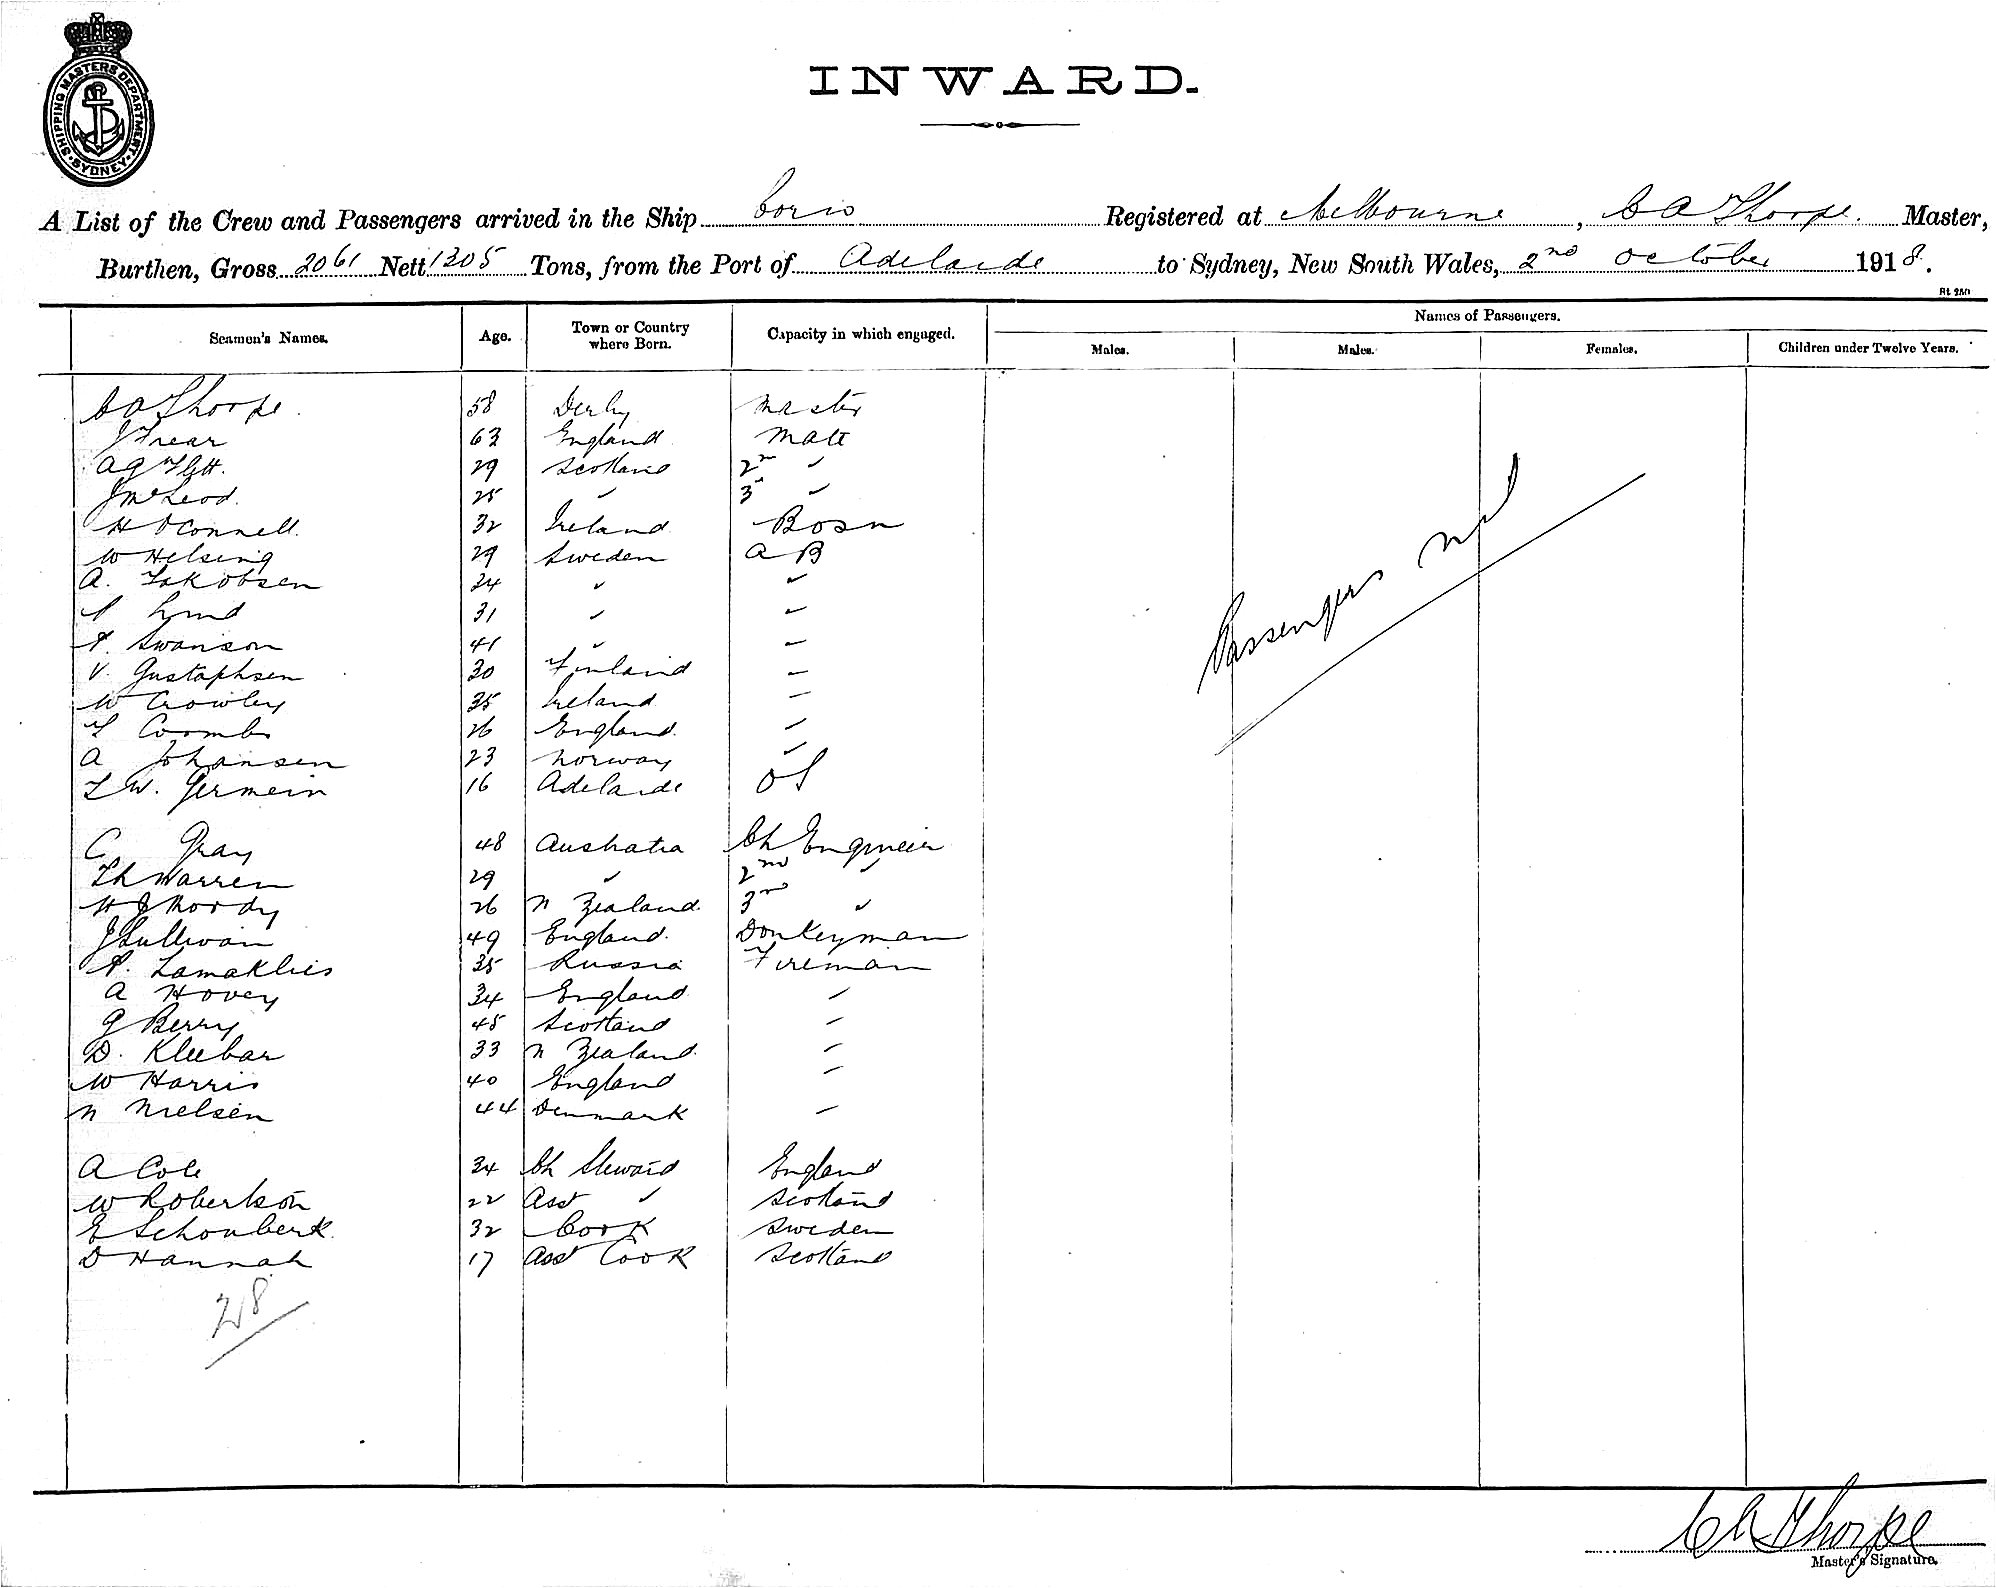 SHIPPING MASTERS DEPARTMENT SYDNEY
INWARD.
A List of the Crew and Passengers arrived in the Ship Corio Registered at Melbourne, C A Thorpe. Master,
Burthen, Gross 2061 Nett 1305 Tons, from the Port of Adelaide to Sydney, New South Wales, 2nd October 1918.
Seamen's Names. Age. Town or Country where Born. Capacity in which engaged. Names of Passengers.
Males. Males. Females. Children under Twelve Years.
C A Thorpe. 58 Derby Master
J Frear 63 England Mate
A G Flett. 29 Scotland 2nd "
J McLeod. 25 " 3rd "
H O'Connell. 32 Ireland Bosn
W Helsing 29 Sweden A B
A. Jakobsen 24 " "
Lund 31 " "
Swanson 41 " "
V. Gustaphsen 30 Finland "
W Crowley 35 Ireland "
Coombs 26 England. "
A Johansen 23 Norway "
W. Germein 16 Adelaide OS
C Gray 48 Australia Ch Engineer
Warren 29 " 2nd "
Moody 26 N Zealand. 3rd "
J Sullivan 49 England. Donkeyman
35 Russia Fireman
A Hovey 34 England "
G Berry 45 Scotland "
D. Kleebar 33 N Zealand. "
W Harris 40 England "
N Nielsen 44 Denmark "
A Cole 34 Ch Steward England
W Robertson 22 Asst " Scotland
E Schonberk. 32 Cook Sweden
D Hannah 17 Asst Cook Scotland
28
Passengers Nil
C A Thorpe
Master's Signature.